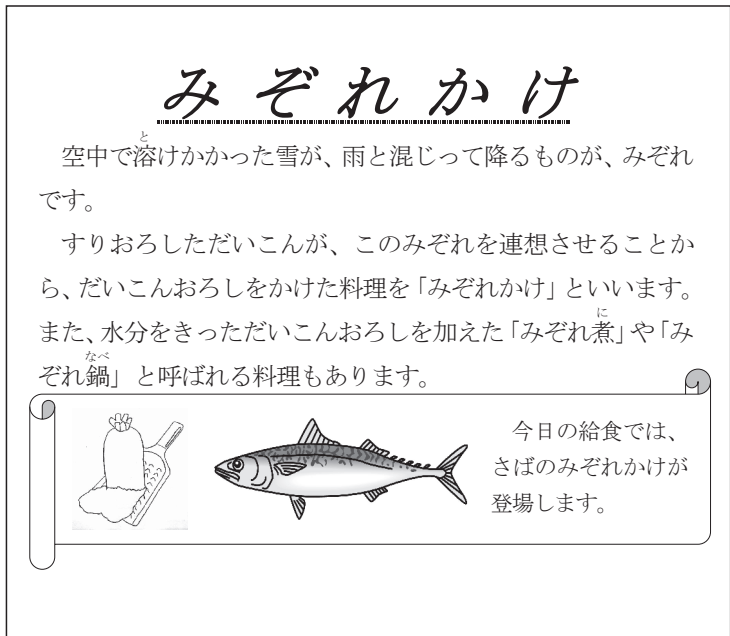 みぞれかけ
空中で溶けかかった雪が、雨と混じって降るものが、みぞれ
です。
すりおろしただいこんが、このみぞれを連想させることか
ら、だいこんおろしをかけた料理を「みぞれかけ」といいます。
また、水分をきっただいこんおろしを加えた「みぞれ煮」や「み
ぞれ鍋」と呼ばれる料理もあります。
今日の給食では、
さばのみぞれかけが
登場します。